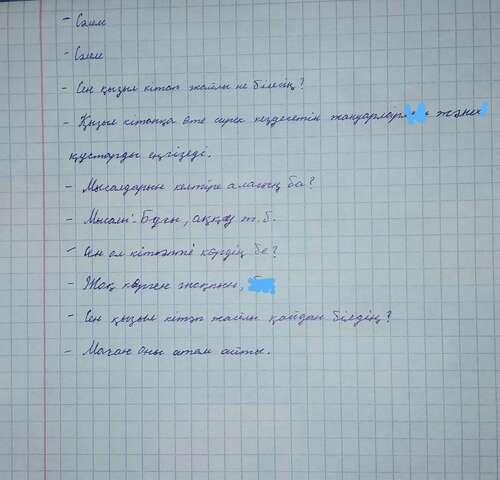 - Сәлем
- Сәлем
- Сен қызыл кітап жайлы не білесің?
- Қызыл кітапқа өте сирек кездесетін жануарлар және
құстарды енгізеді.
- Мысалдарын келтіре аласың ба?
- Мысалы: Бұғы, аққу т.б.
- Сен ол кітапты көрдің бе?
- Жоқ көрген жоқпын,
- Сен қызыл кітап жайлы қайдан білдің?
- Маған оны атам айтты.